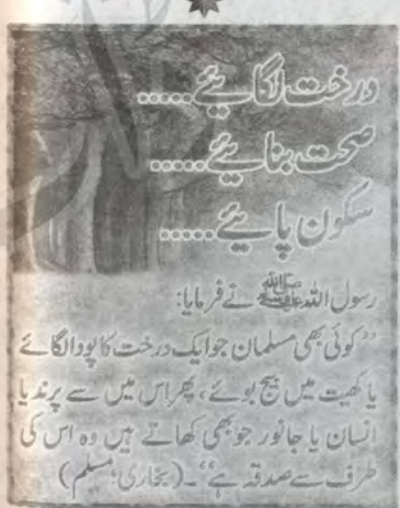 درخت لگائیے.....
صحت بنائیے.....
سکون پائیے.....
رسول اللہ ﷺ نے فرمایا:
”کوئی بھی مسلمان جو ایک درخت کا پودا لگائے
یا کھیت میں بیج بوئے، پھر اس میں سے پرند یا
انسان یا جانور جو بھی کھاتے ہیں وہ اس کی
طرف سے صدقہ ہے“۔ (بخاری؛ مسلم)